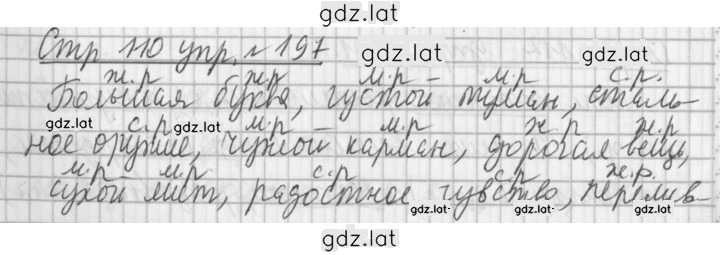 gdz.lat
Стр 110 упр. № 197
gdz.lat
ж.р ж.р м.р м.р с.р.
Большая буква, густой туман, сталь-
gdz.lat
с.р gdz.lat м.р м.р ж.р ж.р
ное оружие, чужой карман, дорогая вещь,
м.р м.р с.р с.р ж.р.
сухой лист, радостное чувство, перелив-
gdz.lat gdz.lat gdz.lat
gdz.lat